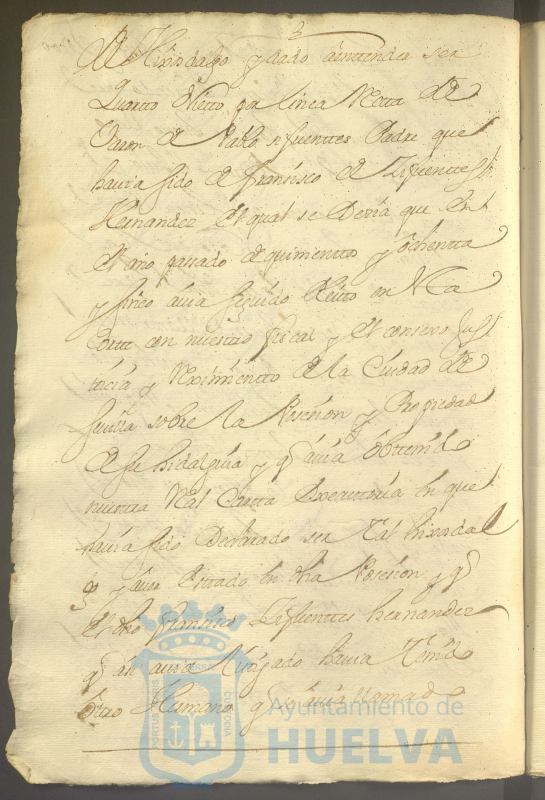 de Hixodalgo y dado a entender ser
Quarto Nieto por linea Recta de
Varon de Pablo sifuentes Padre que
havia sido de francisco de Zifuentes
Hernandez el qual se Dezia que en
el año pasado de quinientos y ochenta
y sinco avia seguido Pleito en la
corte con nuestro fiscal y el consexo Just
ticia y Reximiento de la Ciudad de
sevilla sobre la Posesion y Propiedad
de su hidalguia y q avia obtenido
nuestra Real Carta Executoria en que
havia sido Declarado ser tal hixodal
go y aver estado en dha Posesion y q
el dho francisco Zifuentes hernandez
q asi avia litigado havia tenido
otro Hermano q se avia llamado
Ayuntamiento de
HUELVA
PORTUS